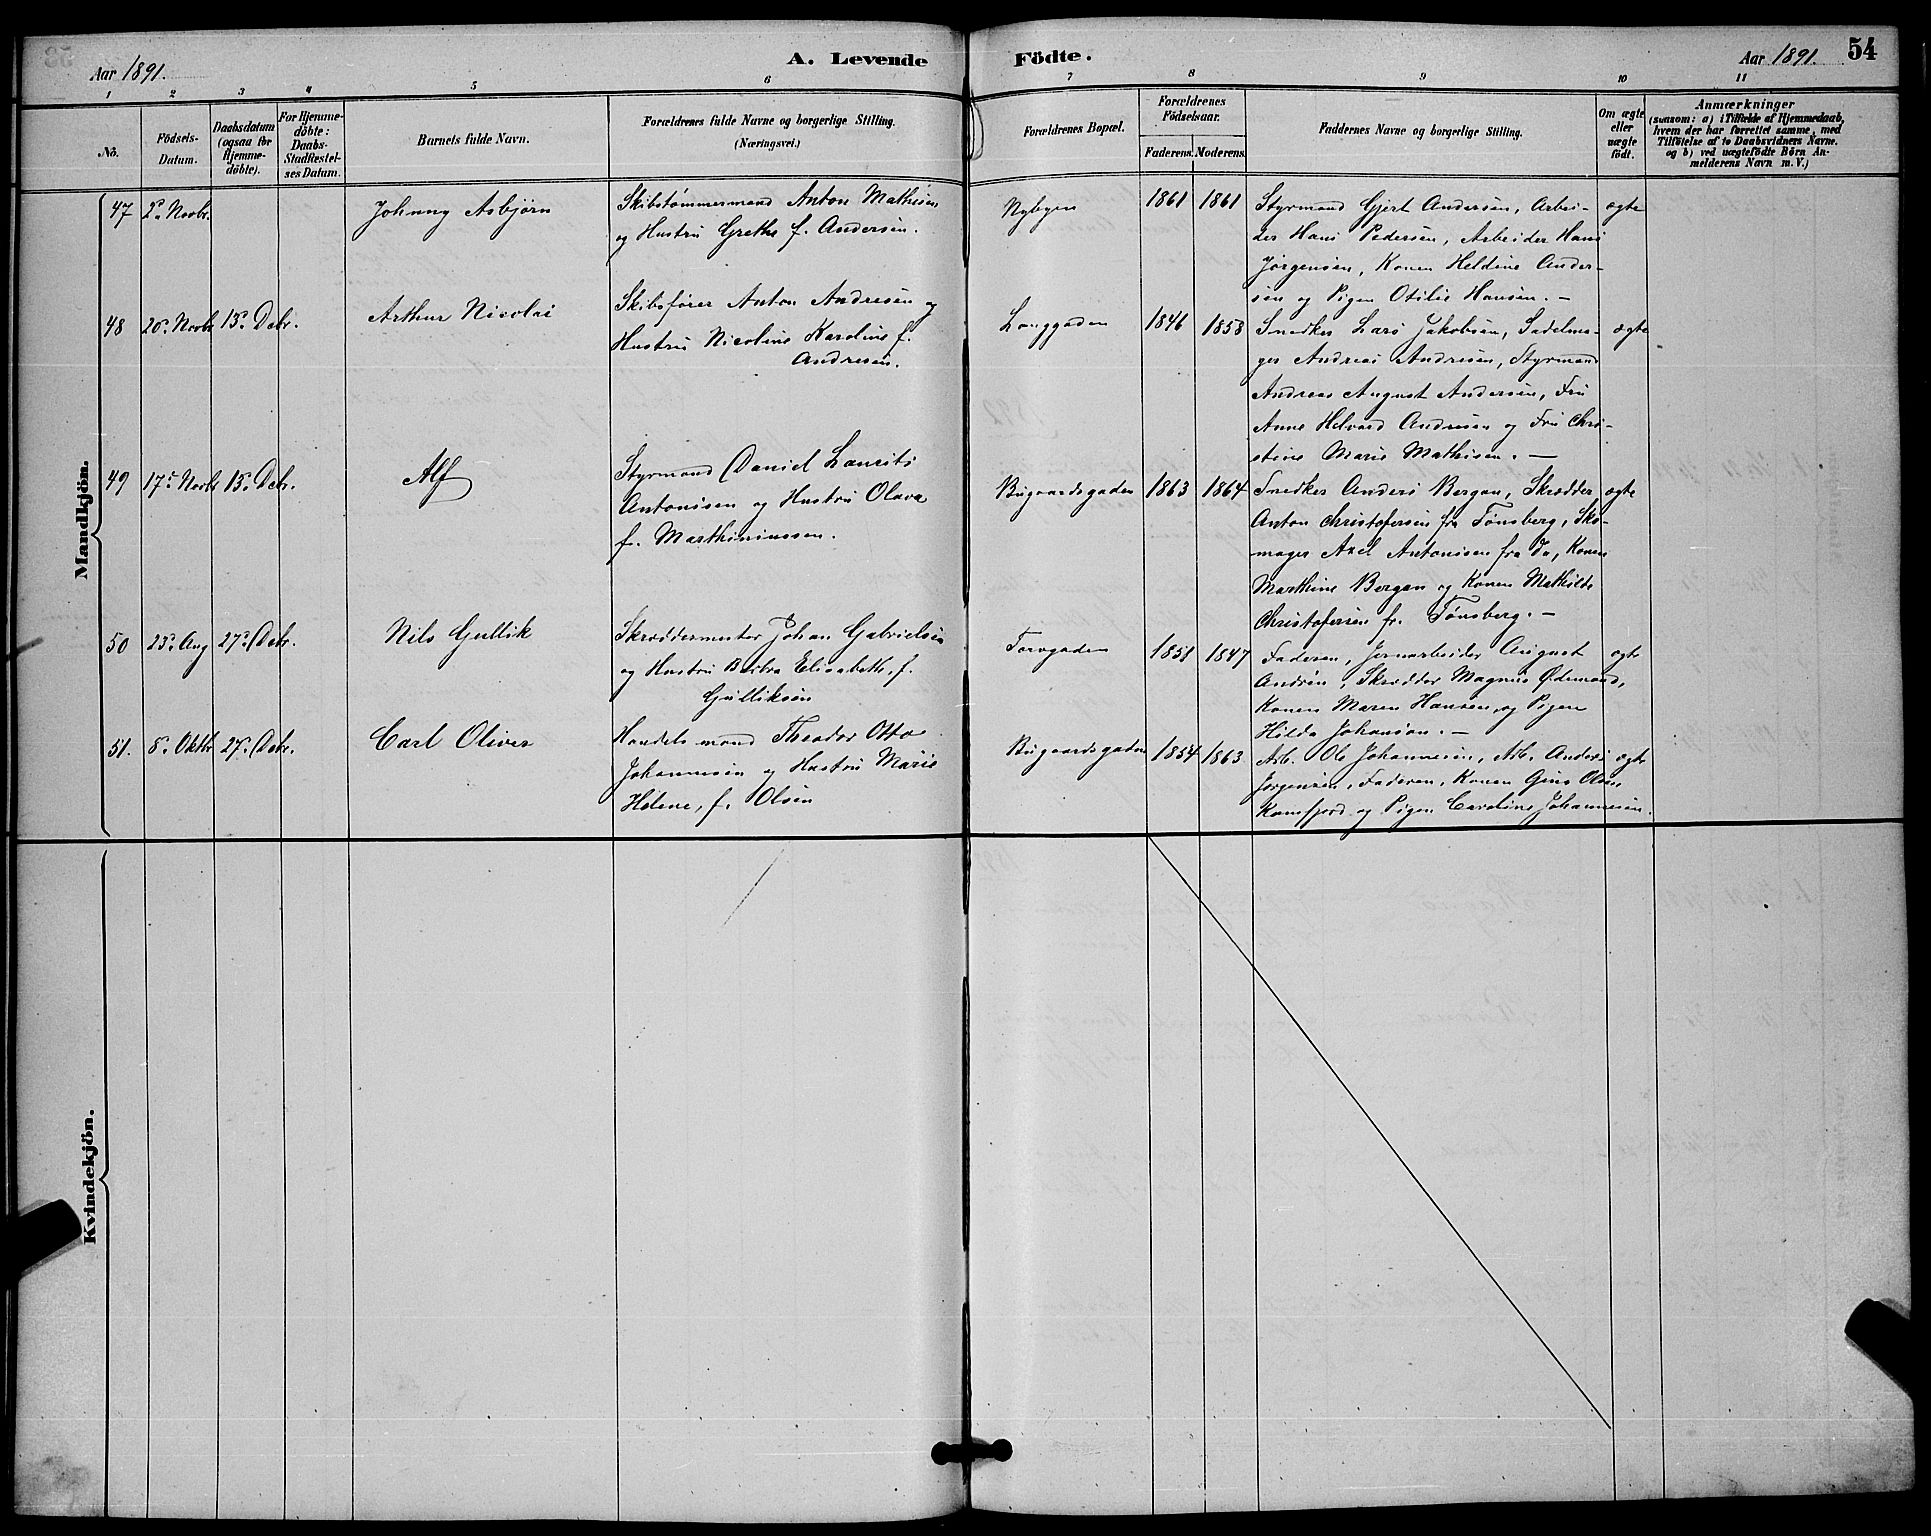 Aar 1891.
A. Levende
Födte.
Aar 1891.
54
1 2 3 4 5 6 7 8 9 10 11
No.
Födsels-Datum.
Daabsdatum (ogsaa for Hjemme-döbte).
For Hjemme-döbte: Daabs-Stadfæstel-ses Datum.
Barnets fulde Navn.
Forældrenes fulde Navne og borgerlige Stilling.
(Næringsvei.)
Forældrenes Bopæl.
Forældrenes Födselsaar.
Faderens. Moderens.
Faddernes Navne og borgerlige Stilling.
Om ægte eller uægte födt.
Anmærkninger
(saasom: a) i Tilfælde af Hjemmedaab,
hvem der har forrettet samme, med
Tilföielse af to Daabsvidners Navne,
og b) ved uægtefödte Börn An-
melderens Navn m. V.)
Mandkjön.
47 2. Novbr. Johnny Asbjørn
Skibstømmermand Anton Mathisen
og Hustru Grethe f. Andersen.
Nybyen 1861 1861
Styrmand Gjert Andersen, Arbei-
der Hans Pedersen, Arbeider Hans
Jørgensen, Konen Heldine Ander-
sen og Pigen Otilie Hansen. —
ægte
48 20. Novbr 13. Debr. Arthur Nicolai
Skibsfører Anton Andresen og
Hustru Nicoline Karoline f.
Andresen.
Langgaden 1846 1858
Snedker Lars Jakobsen, Sadelma-
ger Andreas Andresen, Styrmand
Andreas August Andersen, Fru
Anne Helvard Andresen og Fru Chri-
stine Marie Mathisen. —
ægte
49 17. Novbr 13. Debr. Alf
Styrmand Daniel Laurits
Antonisen og Hustru Olava
f. Marthiniussen.
Bugaardsgaden 1863 1864
Snedker Anders Bergan, Skrædder
Anton Christofersen fra Tønsberg, Sko-
mager Axel Antonisen fra do, Konen
Marthine Bergan og Konen Mathilde
Christofersen fr. Tønsberg. —
ægte
50 23. Aug 27. Debr. Nils Gullik
Skræddermester Johan Gabrielsen
og Hustru Barbra Elisabeth, f.
Gulliksen
Torvgaden 1851 1847
Faderen, Jernarbeider August
Andrén, Skrædder Magnus Ødemand,
Konen Maren Hansen, og Pigen
Hilda Johansen. —
ægte
51. 8. Oktbr 27. Debr. Carl Oliver
Handelsmand Theodor Otto
Johannesen og Hustru Marie
Helene, f. Olsen
Bugaardsgaden 1854 1863.
Arb. Ole Johannesen, Arb. Anders
Jørgensen, Faderen, Konen Gina Olsen
Ramfjord og Pigen Caroline Johannesen.
ægte
Kvindekjön.